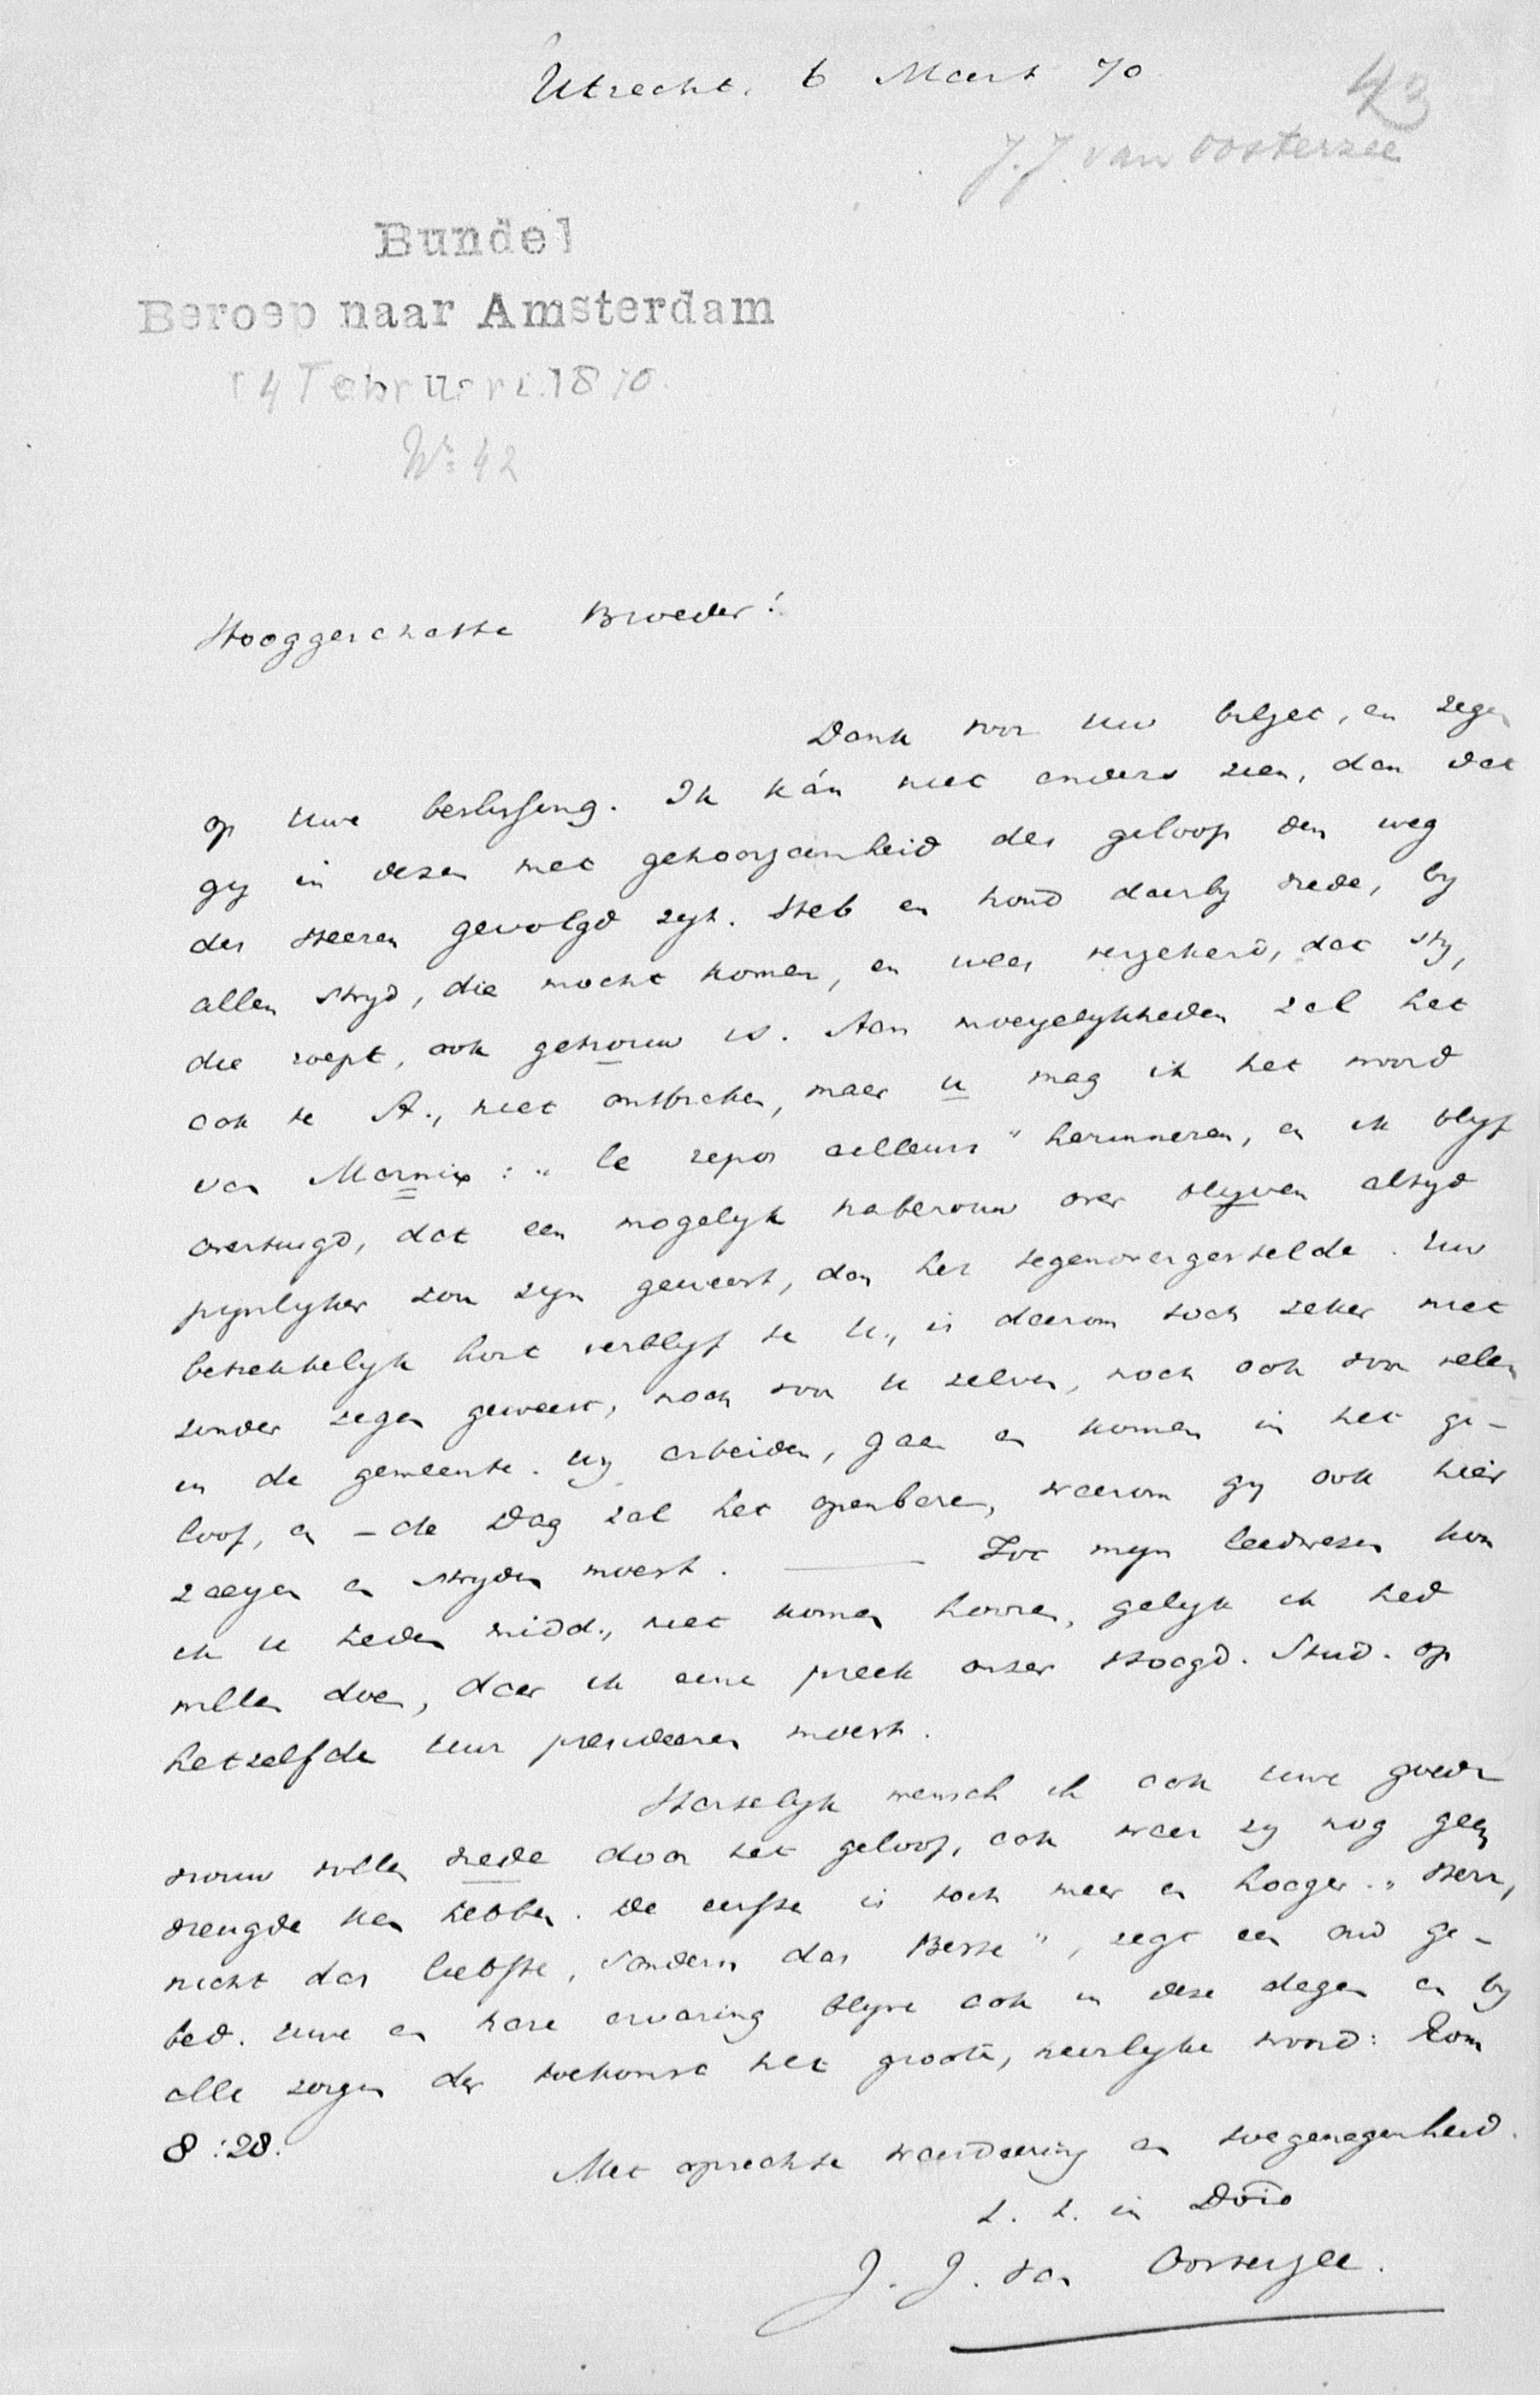 Utrecht, 6 Maart 70
43
J.J. van Oosterzee
Bundel
Beroep naar Amsterdam
14 Februari 1870.
No 42
Hooggeschatte Broeder!
Dank voor uw biljet, en zegen
op uwe beslissing. Ik kán niet anders zien, dan dat
gy in dezen met gehoorzaamheid des geloofs den weg
des Heeren gevolgd zyt. Heb en houd daarby vrede, by
allen stryd, die mocht komen, en wees verzekerd, dat Hy,
die roept, ook getrouw is. Aan moeyelykheden zal het
ook te A., niet ontbreken, maar u mag ik het woord
van Marnix: "le repos ailleurs" herinneren, en ik blyf
overtuigd, dat een mogelyk naberouw over blyven altyd
pynlyker zou zyn geweest, dan het tegenovergestelde. Uw
betrekkelyk kort verblyf te U., is daarom toch zeker niet
zonder zegen geweest, noch voor u zelven, noch ook voor velen
in de gemeente. Wy arbeiden, gaan en komen in het ge-
loof, en - de Dag zal het openbaren, waarom gy ook hier
zaayen en stryden moest. — Tot myn leedwezen kon
ik u heden midd., niet komen hooren, gelyk ik had
willen doen, daar ik eene preek onzer Hoogd. Stud. op
hetzelfde uur presideeren moest.
Hartelyk wensch ik ook uwe goede
vrouw vollen vrede door het geloof, ook waar zy nog geen
vreugde kan hebben. De eerste is toch meer en hooger. "Herr,
nicht das liebste, sondern das Beste", zegt een oud ge-
bed. Uwe en hare ervaring blyve ook in deze dagen en by
alle zorgen der toekomst het groote, heerlyke woord: Rom
8:28.
Met oprechte waardeering en toegenegenheid.
t. t. in Dno
J. J. van Oosterzee.